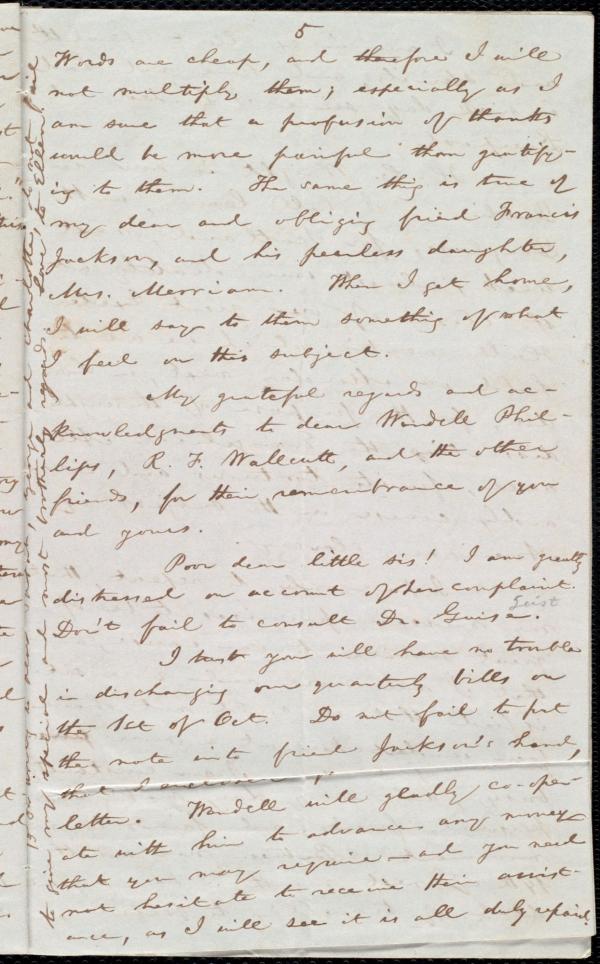 5
Words are cheap, and therefore I will
not multiply them; especially as I
am sure that a profusion of thanks
would be more painful than gratify-
ing to them. The same thing is true of
my dear and obliging friend Francis
Jackson, and his peerless daughter,
Mrs. Merriam. When I get home,
I will say to them something of what
I feel on this subject.
My grateful regards and ac-
knowledgments to dear Wendell Phil-
lips, R. F. Wallcutt, and the other
friends, for their remembrance of you
and yours.
Poor dear little sis! I am greatly
distressed on account of her complaint.
Don't fail to consult Dr. Guise.
Geist
I trust you will have no trouble
in discharging our quarterly bills on
the 1st of Oct. Do not fail to put
the note into friend Jackson's hand,
that I
letter. Wendell will gladly co-oper-
ate with him to advance any money
that you may require—and you need
not hesitate to receive their assist-
ance, as I will see it is all duly repaid.
to give my special and most
regards
love to Ellen